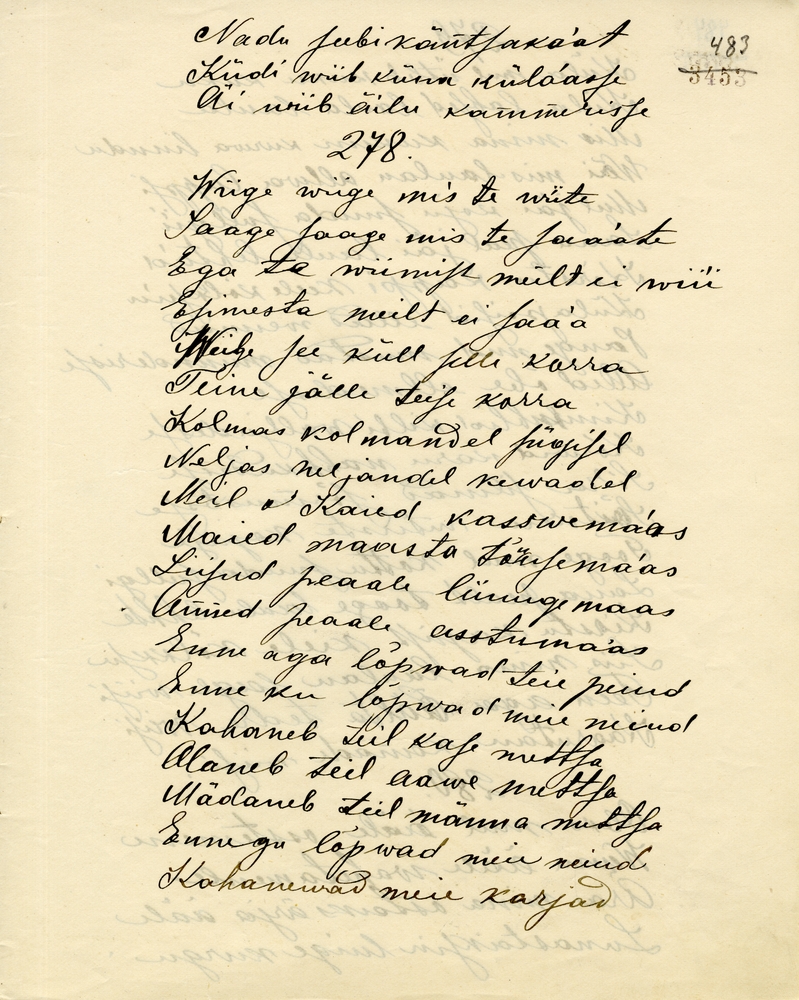 Nadu seebi käntsakaàt
483
3453
Küdi wiib küna küläàsse
Äi wiib äilu kammerisse
278.
Wiige wiige mis te wiite
Saage saage mis te saaàte
Ega te wiimist meilt ei wiii
Esimesta meilt ei saaà
Weige see küll selle korra
Teine jälle teise korra
Kolmas kolmandel sügisel
Neljas neljandel kewadel
Meil o' Kaied kasswemaàs
Maied maasta tõusemaàs
Liisud peaale liinugemaas
Anned peaale asstumaàs
Enne aga lõpwad teie peiud
Enne ku lõpwad meie neiud
Kahaneb teil kase mettsa
Alaneb teil aawe mettsa
Mädaneb teil männa mettsa
Ennegu lõpwad meie neiud
Kahanewad meie karjad